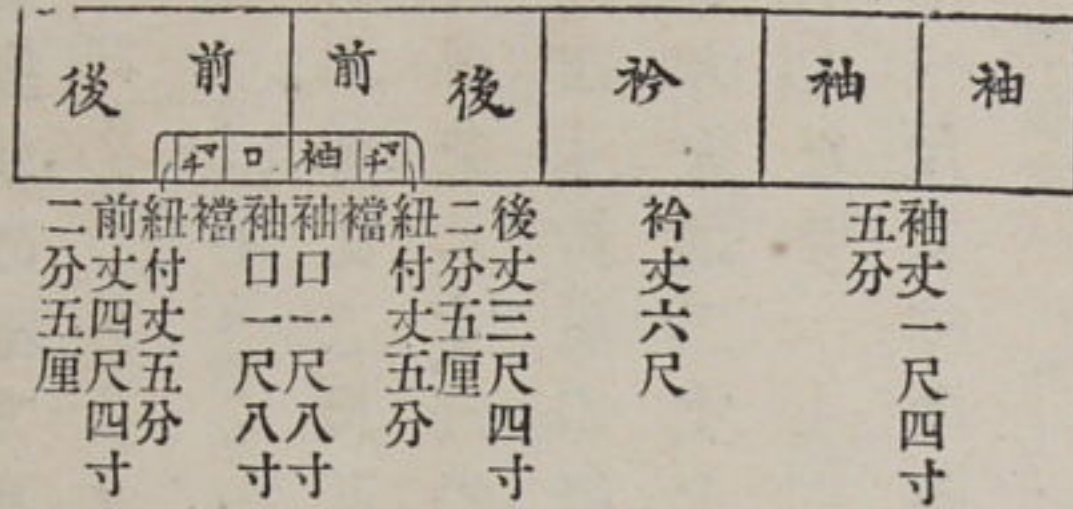 袖
袖
衿
後
前
前
後
マチ
袖
口
マチ
袖丈一尺四寸
五分
衿丈六尺
後丈三尺四寸
二分五厘
紐付丈五分
襠
袖口一尺八寸
袖口一尺八寸
襠
紐付丈五分
前丈四尺四寸
二分五厘